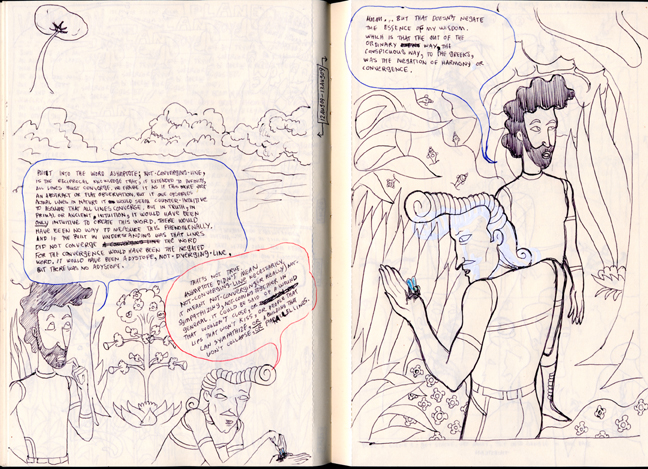 BUILT INTO THE WORD ASYMPTOTE; NOT-CONVERGING-LINE,
IS THE RECIPROCAL KNOWLEDGE THAT, IF EXTENDED TO INFINITY,
ALL LINES MUST CONVERGE. WE FRAME IT AS IF THIS WERE JUST
AN ABERRANT OR OBSERVATION, BUT IF ONE OBSERVES
ACTUAL LINES IN NATURE IT WOULD SEEM COUNTER-INTUITIVE
TO ASSUME THAT ALL LINES CONVERGE, BUT IN TRUTH, IN
PRIMAL OR ANCIENT INTUITION, IT WOULD HAVE BEEN
ONLY INTUITIVE TO CREATE THIS WORD. THERE WOULD
HAVE BEEN NO WAY TO MEASURE THIS PHENOMENALLY.
AND IF THE BUILT IN UNDERSTANDING WAS THAT LINES
DID NOT CONVERGE THE WORD
FOR THE CONVERGENCE WOULD HAVE BEEN THE NEGATED
WORD. IT WOULD HAVE BEEN ADYSTOPE, NOT-DIVERGING-LINE,
BUT THERE WAS NO ADYSTOPE.
THAT'S NOT TRUE
ASYMPTOTE DIDN'T MEAN
NOT-CONVERGING-LINE NECESSARILY,
IT MEANT NOT-CONVERGING (OR REALLY) NOT-
SYMPATHIZING, NOT COMING TOGETHER IN
GENERAL. IT COULD BE SAID OF A WOUND
THAT WOULDN'T CLOSE, OR
LIPS THAT WON'T KISS, OR PEOPLE THAT
CAN SYMPATHIZE, OR A BUILDING THAT
WON'T COLLAPSE, OR PARALLEL LINES.
HMM... BUT THAT DOESN'T NEGATE
THE ESSENCE OF MY WISDOM.
WHICH IS THAT THE OUT OF THE
ORDINARY WAY, THE
CONSPICUOUS WAY, TO THE GREEKS,
WAS THE NEGATION OF HARMONY OR
CONVERGENCE.